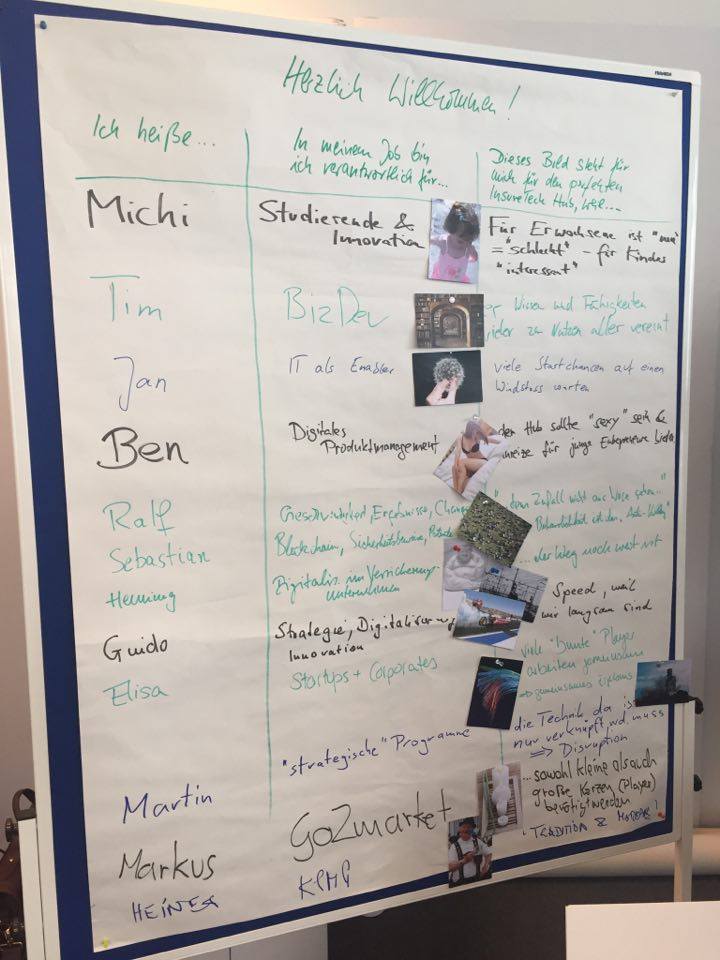 Herzlich Willkommen!
Ich heiße...
In meinem Job bin
ich verantwortlich für...
Dieses Bild steht für
mich für den perfekten
InsureTech Hub, weil...
Michi
Studierende &
Innovation
Für Erwachsene ist "neu"
= "schlecht" - für Kinder
"interessant"
Tim
BizDev
Wissen und Fähigkeiten
zu Nutzen aller vereint
Jan
IT als Enabler
viele Startchancen auf einen
Windstoss warten
Ben
Digitales
Produktmanagement
der Hub sollte "sexy" sein &
für junge Entrepreneure
Ralf
Zufall
Sebastian
Blockchain,
Henning
Digitalis. im Versicherungs-
unternehmen
...der Weg noch weit ist
Guido
Strategie, Digitalisierung
Innovation
Speed, weil
wir langsam sind
Elisa
Startups + Corporates
viele "Bunte" Player
arbeiten gemeinsam
gemeinsames
Martin
"strategische" Programme
die Technik da ist
nur verknüpft wd. muss
=> Disruption
Markus
Go2market
...sowohl kleine als auch
große Kerzen (Player)
benötigt werden
HEINER
KPMG
TRADITION &